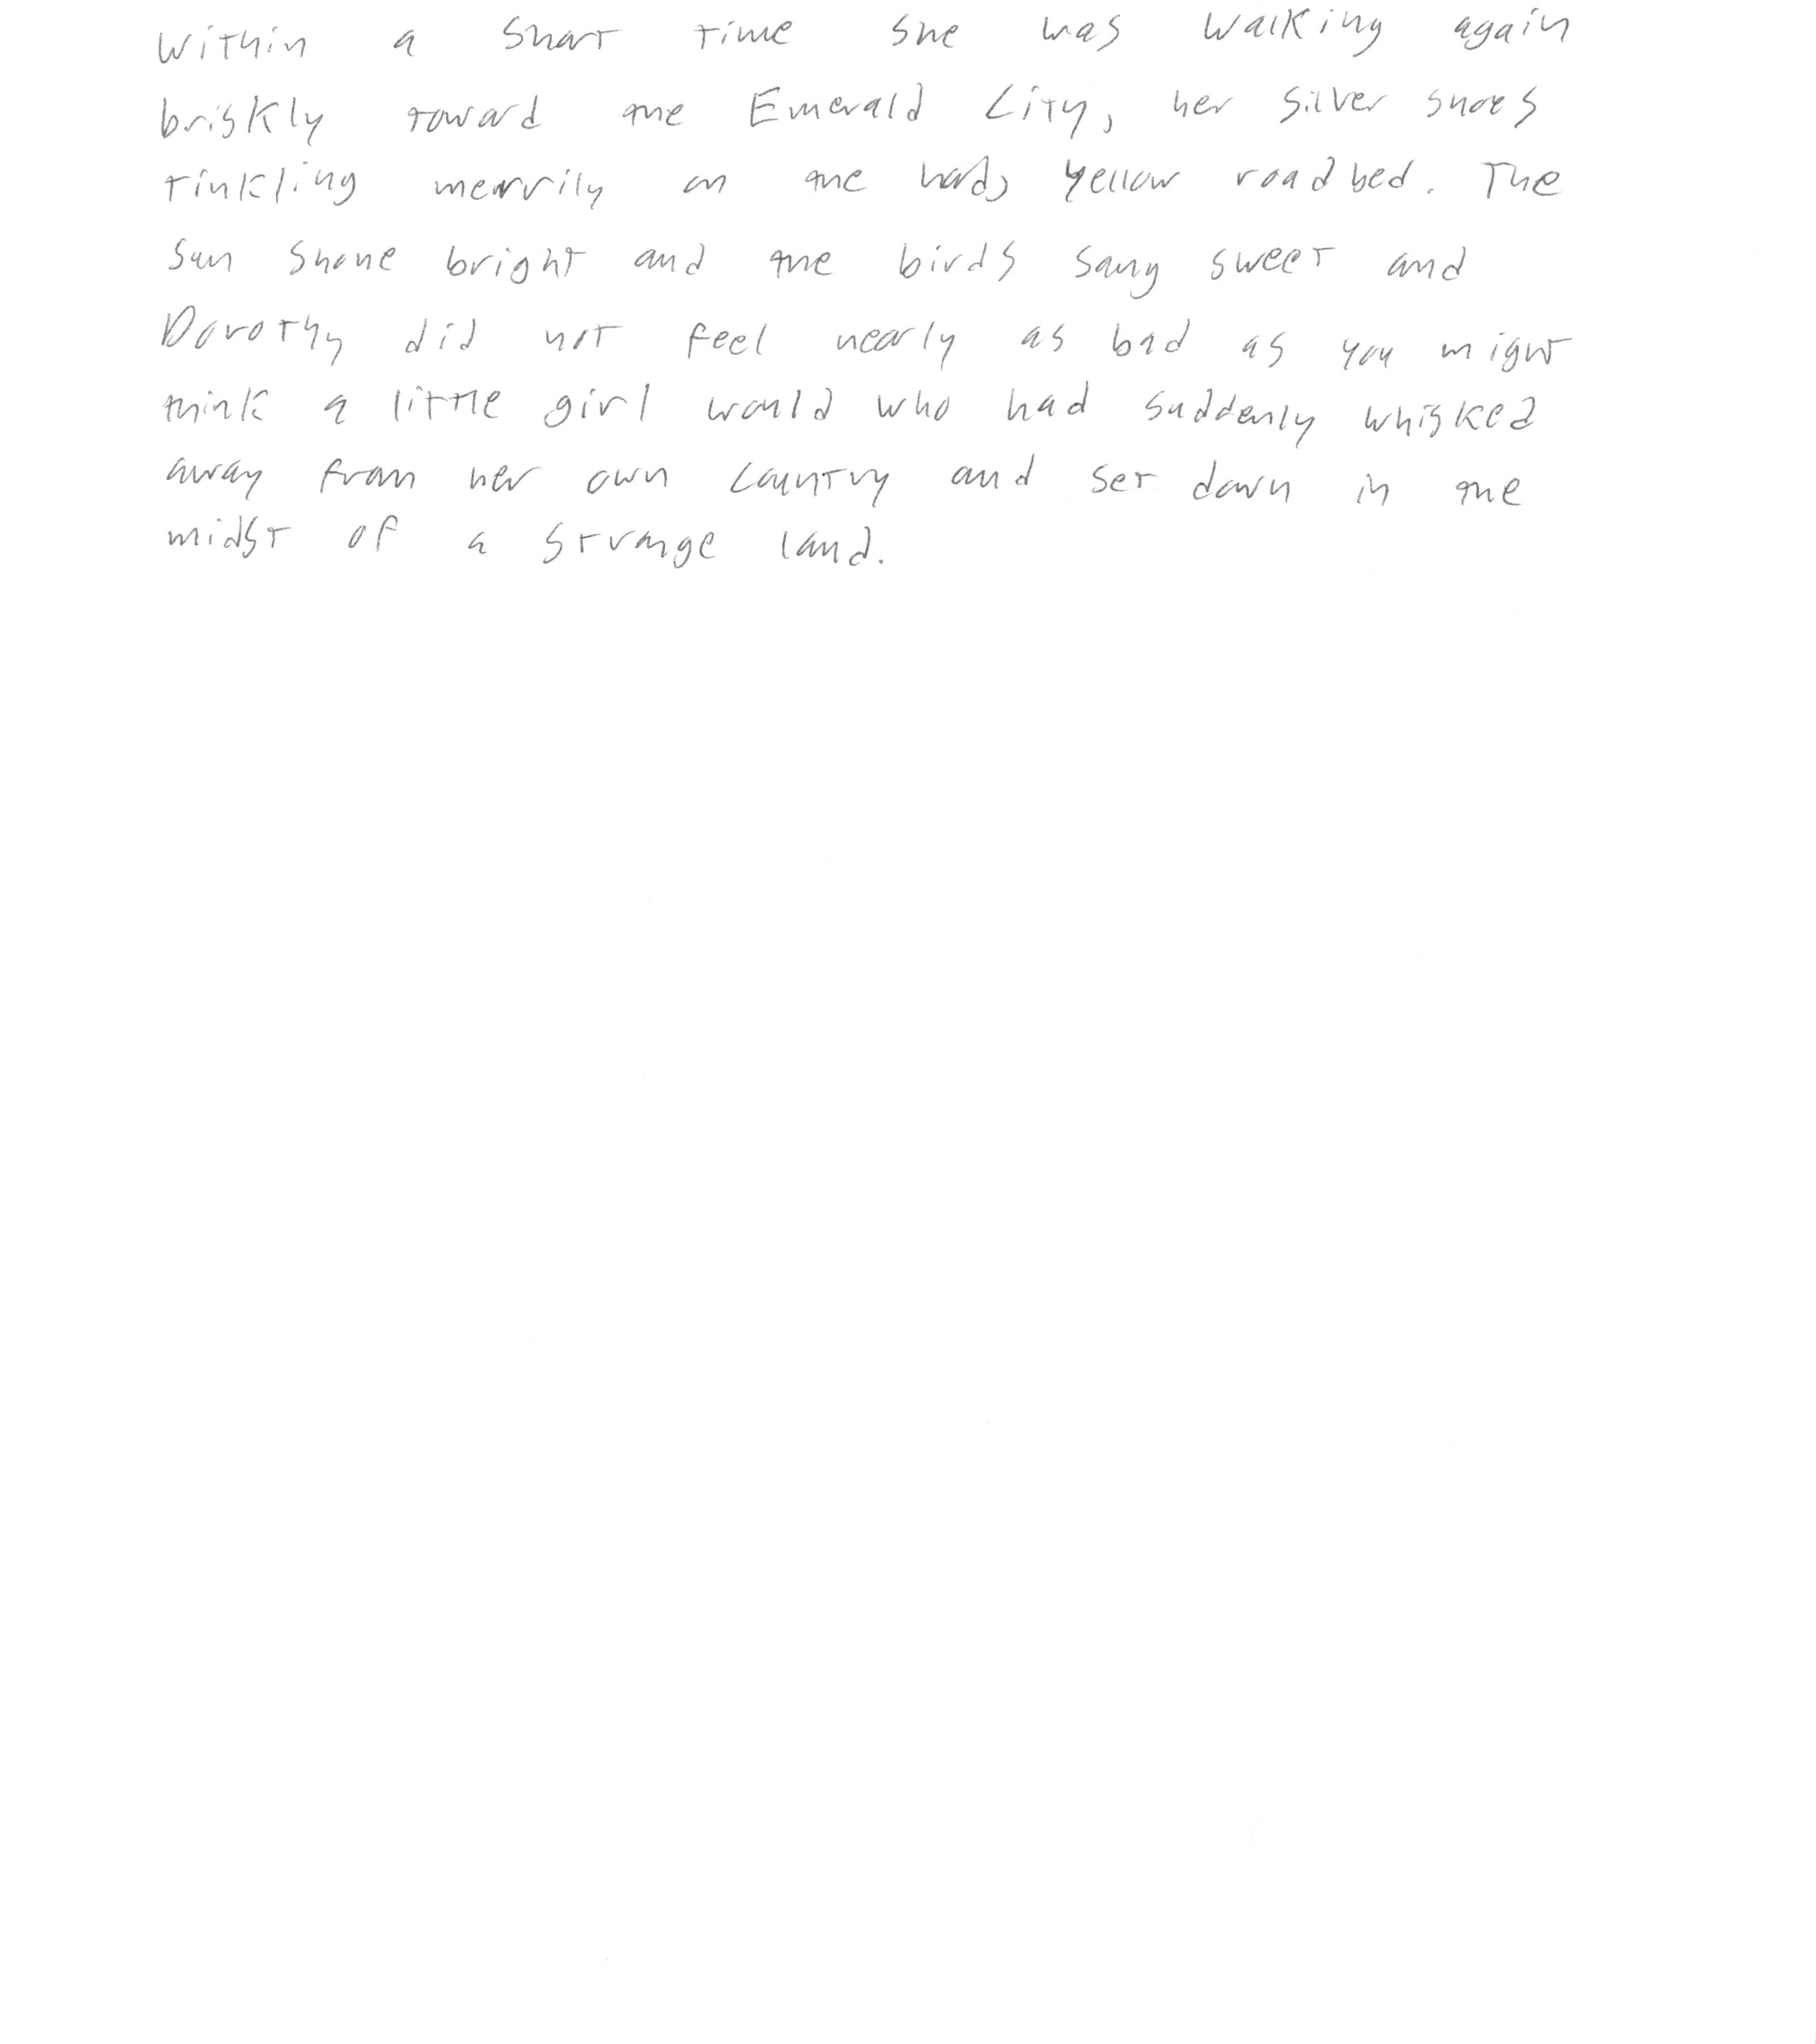 Within a short time she was walking again
briskly toward the Emerald City, her silver shoes
tinkling merrily on the hard, yellow roadbed. The
sun shone bright and the birds sang sweet and
Dorothy did not feel nearly as bad as you might
think a little girl would who had suddenly whisked
away from her own country and set down in the
midst of a strange land.